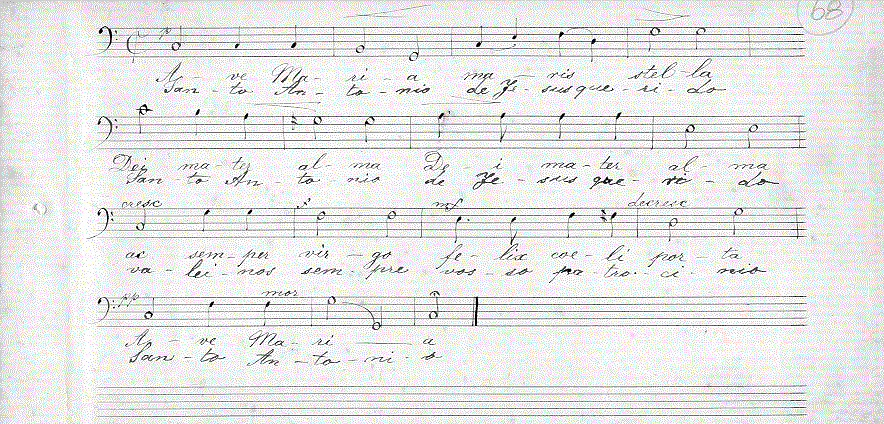 68
p
A - ve Ma - ri - a ma - ris stel - la
San - to An - to - nio de Je - sus que - ri - do
Dei ma - ter al - ma De - i ma - ter al - ma
San - to An - to - nio de Je - sus que - ri - do
cresc mf decresc
ac sem - per vir - go fe - lix coe - li por - ta
va - lei - nos sem - pre vos - so pa - tro - ci - nio
pp mor
A - ve Ma - ri - a
San - to An - to - ni - o